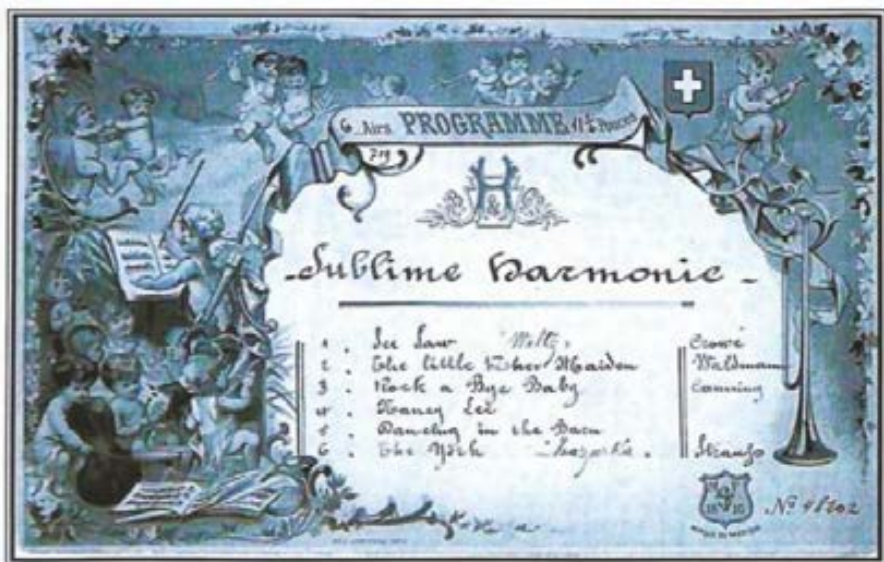 6 Airs PROGRAMME 11½ Pouces
719
H & 
-Sublime Harmonie-
1. See Saw Waltz. Crowe
2. The little Fisher Maiden Waldmann
3. Rock a Bye Baby Canning
4. Nancy Lee
5. Dancing in the Barn
6. The York Strauss
18 10
No 48202